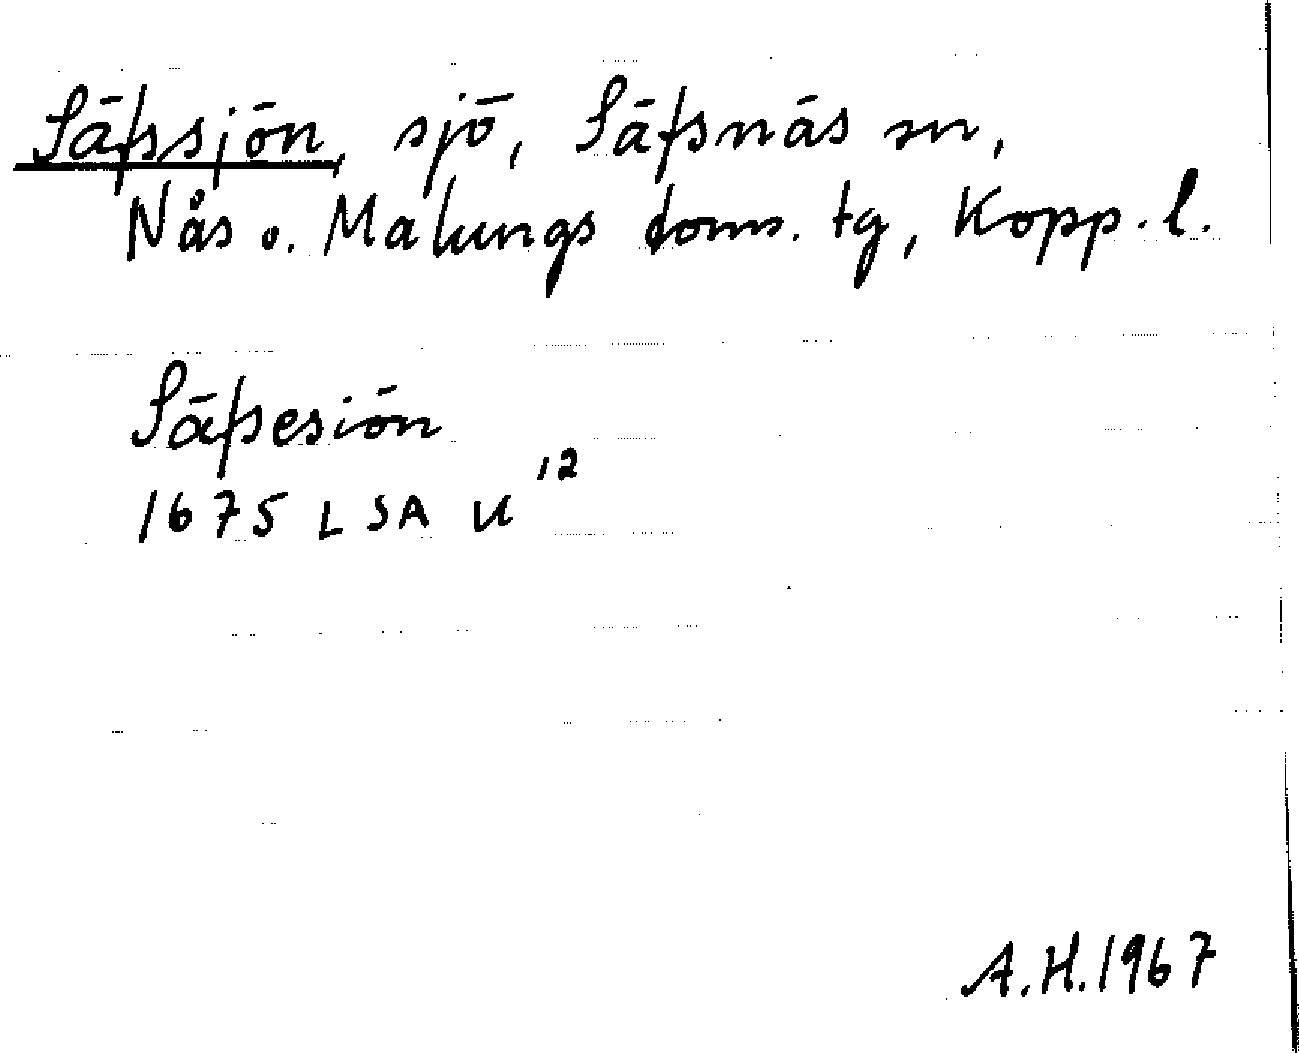 Säfssjön, sjö, Säfsnäs sn,
Nås o. Malungs doms. tg, Kopp. l.
Säfsesiön
1675 LSA U¹²
A.H. 1967